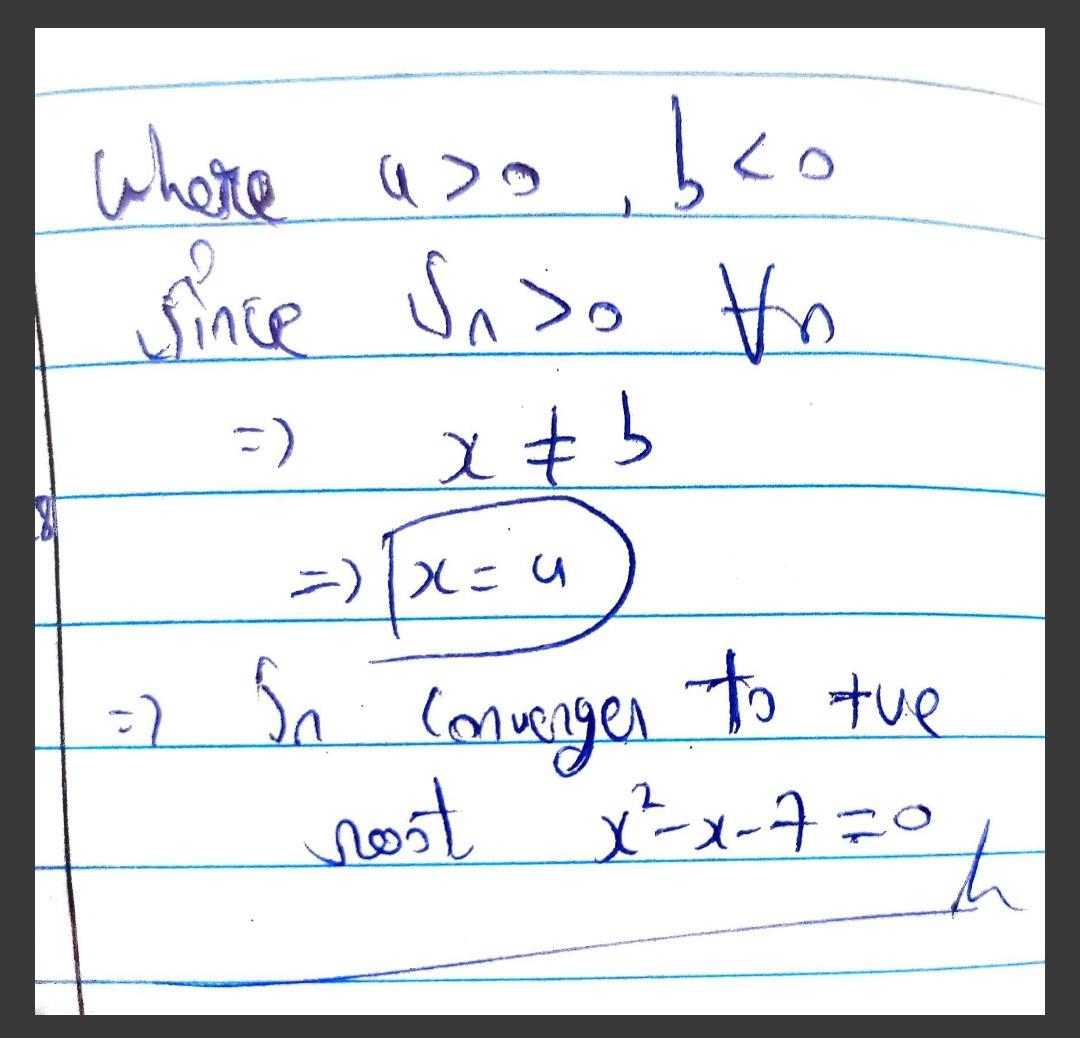 where a > 0 , b < 0
since Sn > 0 ∀n
=> x ≠ b
=> x = a
=> Sn converges to +ve
root x²-x-7=0